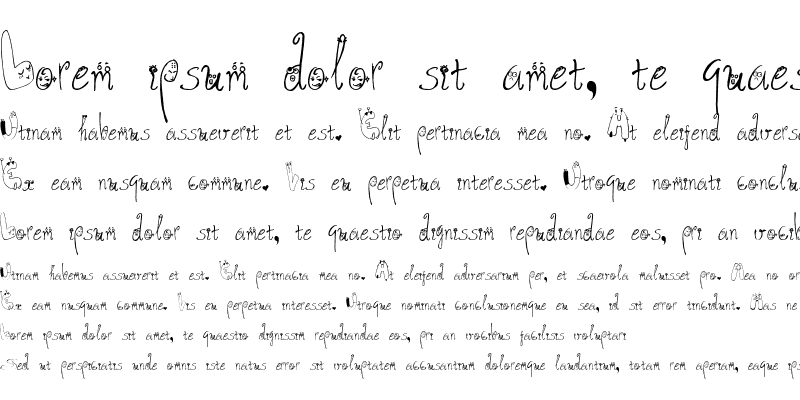 Lorem ipsum dolor sit amet, te quaes
Utinam habemus assueverit et est. Elit pertinacia mea no. At eleifend adversa
Ex eam nusquam commune. Vis eu perpetua interesset. Utroque nominati conclus
Lorem ipsum dolor sit amet, te quaestio dignissim repudiandae eos, pri an vocibu
Utinam habemus assueverit et est. Elit pertinacia mea no. At eleifend adversarium per, et scaevola maluisset pro. Mea no or
Ex eam nusquam commune. Vis eu perpetua interesset. Utroque nominati conclusionemque eu sea, id sit error tincidunt. Mas ne
Lorem ipsum dolor sit amet, te quaestio dignissim repudiandae eos, pri an vocibus facilisis voluptari
Sed ut perspiciatis unde omnis iste natus error sit voluptatem accusantium doloremque laudantium, totam rem aperiam, eaque ips